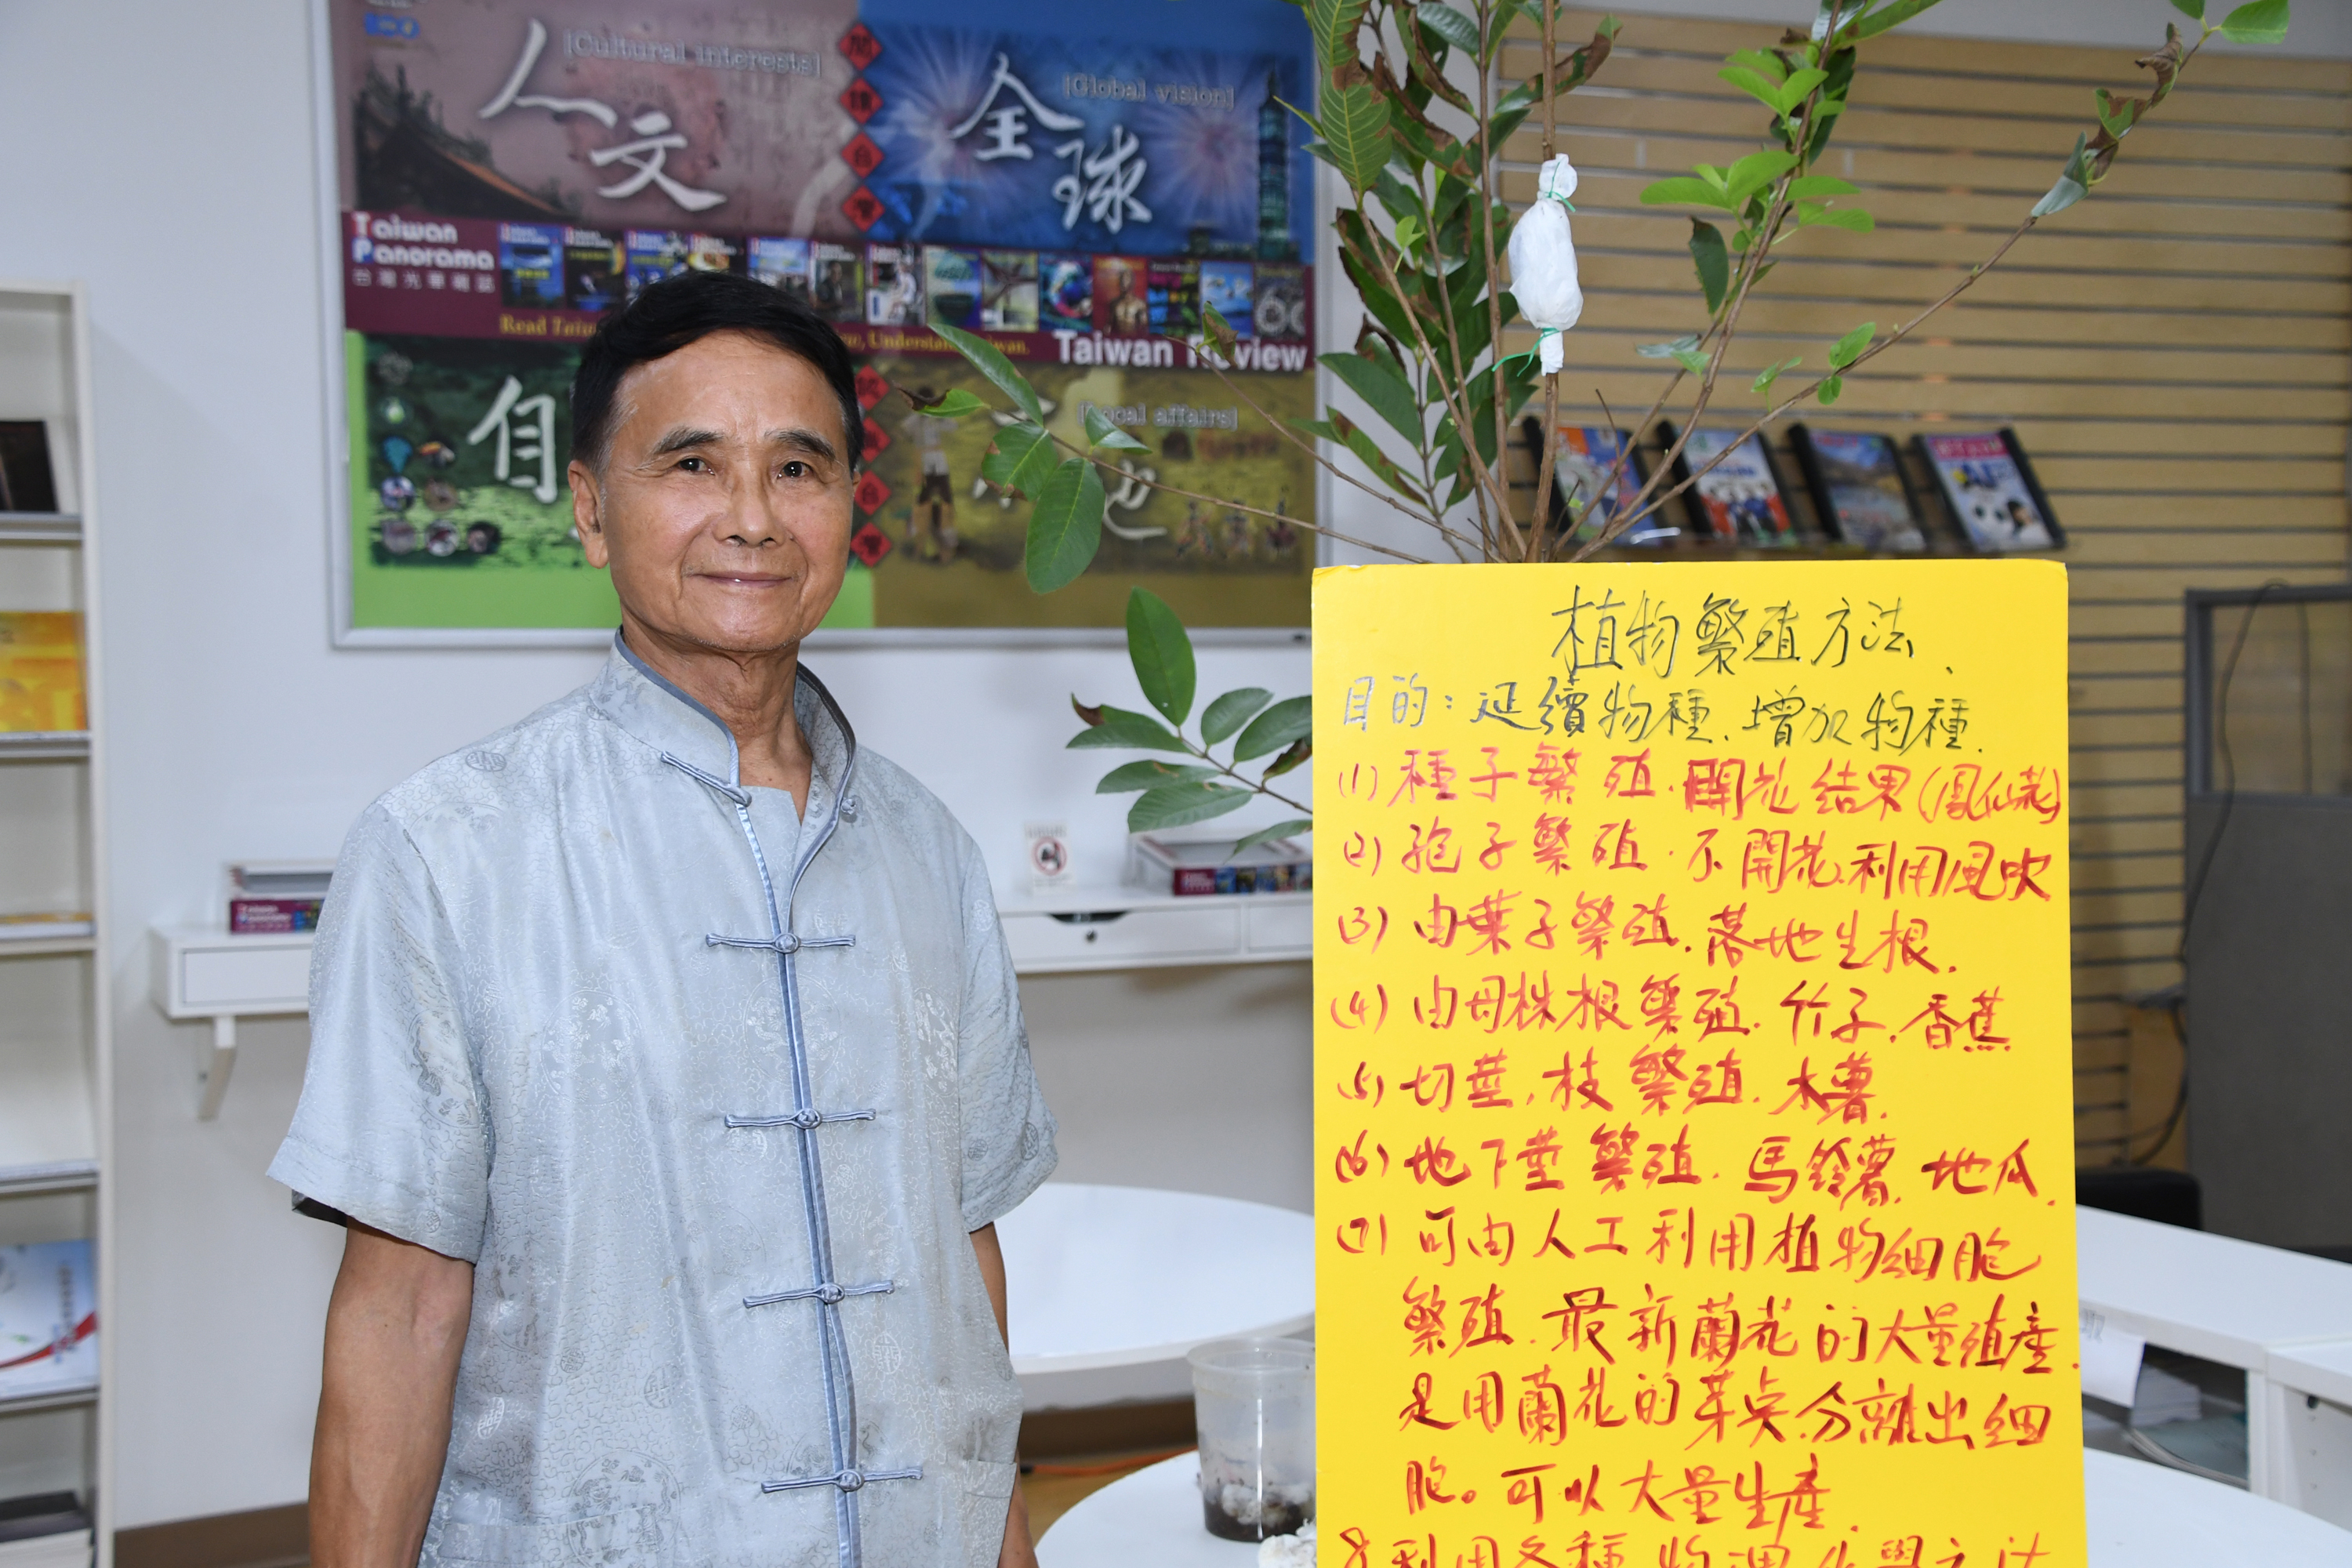 人文
[Cultural interests]
全球
[Global vision]
Taiwan
Panorama
台灣光華雜誌
Taiwan Review
自
[Local affairs]
植物繁殖方法.
目的:延續物種.增加物種.
(1)種子繁殖.開花結果(鳳仙花)
(2)孢子繁殖.不開花.利用風吹
(3)由葉子繁殖.落地生根.
(4)由母株根繁殖.竹子.香蕉.
(5)切莖,枝繁殖.木薯.
(6)地下莖繁殖.馬鈴薯.地瓜.
(7)可由人工利用植物細胞
繁殖.最新蘭花的大量殖產.
是用蘭花的芽点.分離出細
胞。可以大量生產.
8利用各種物理化學方法